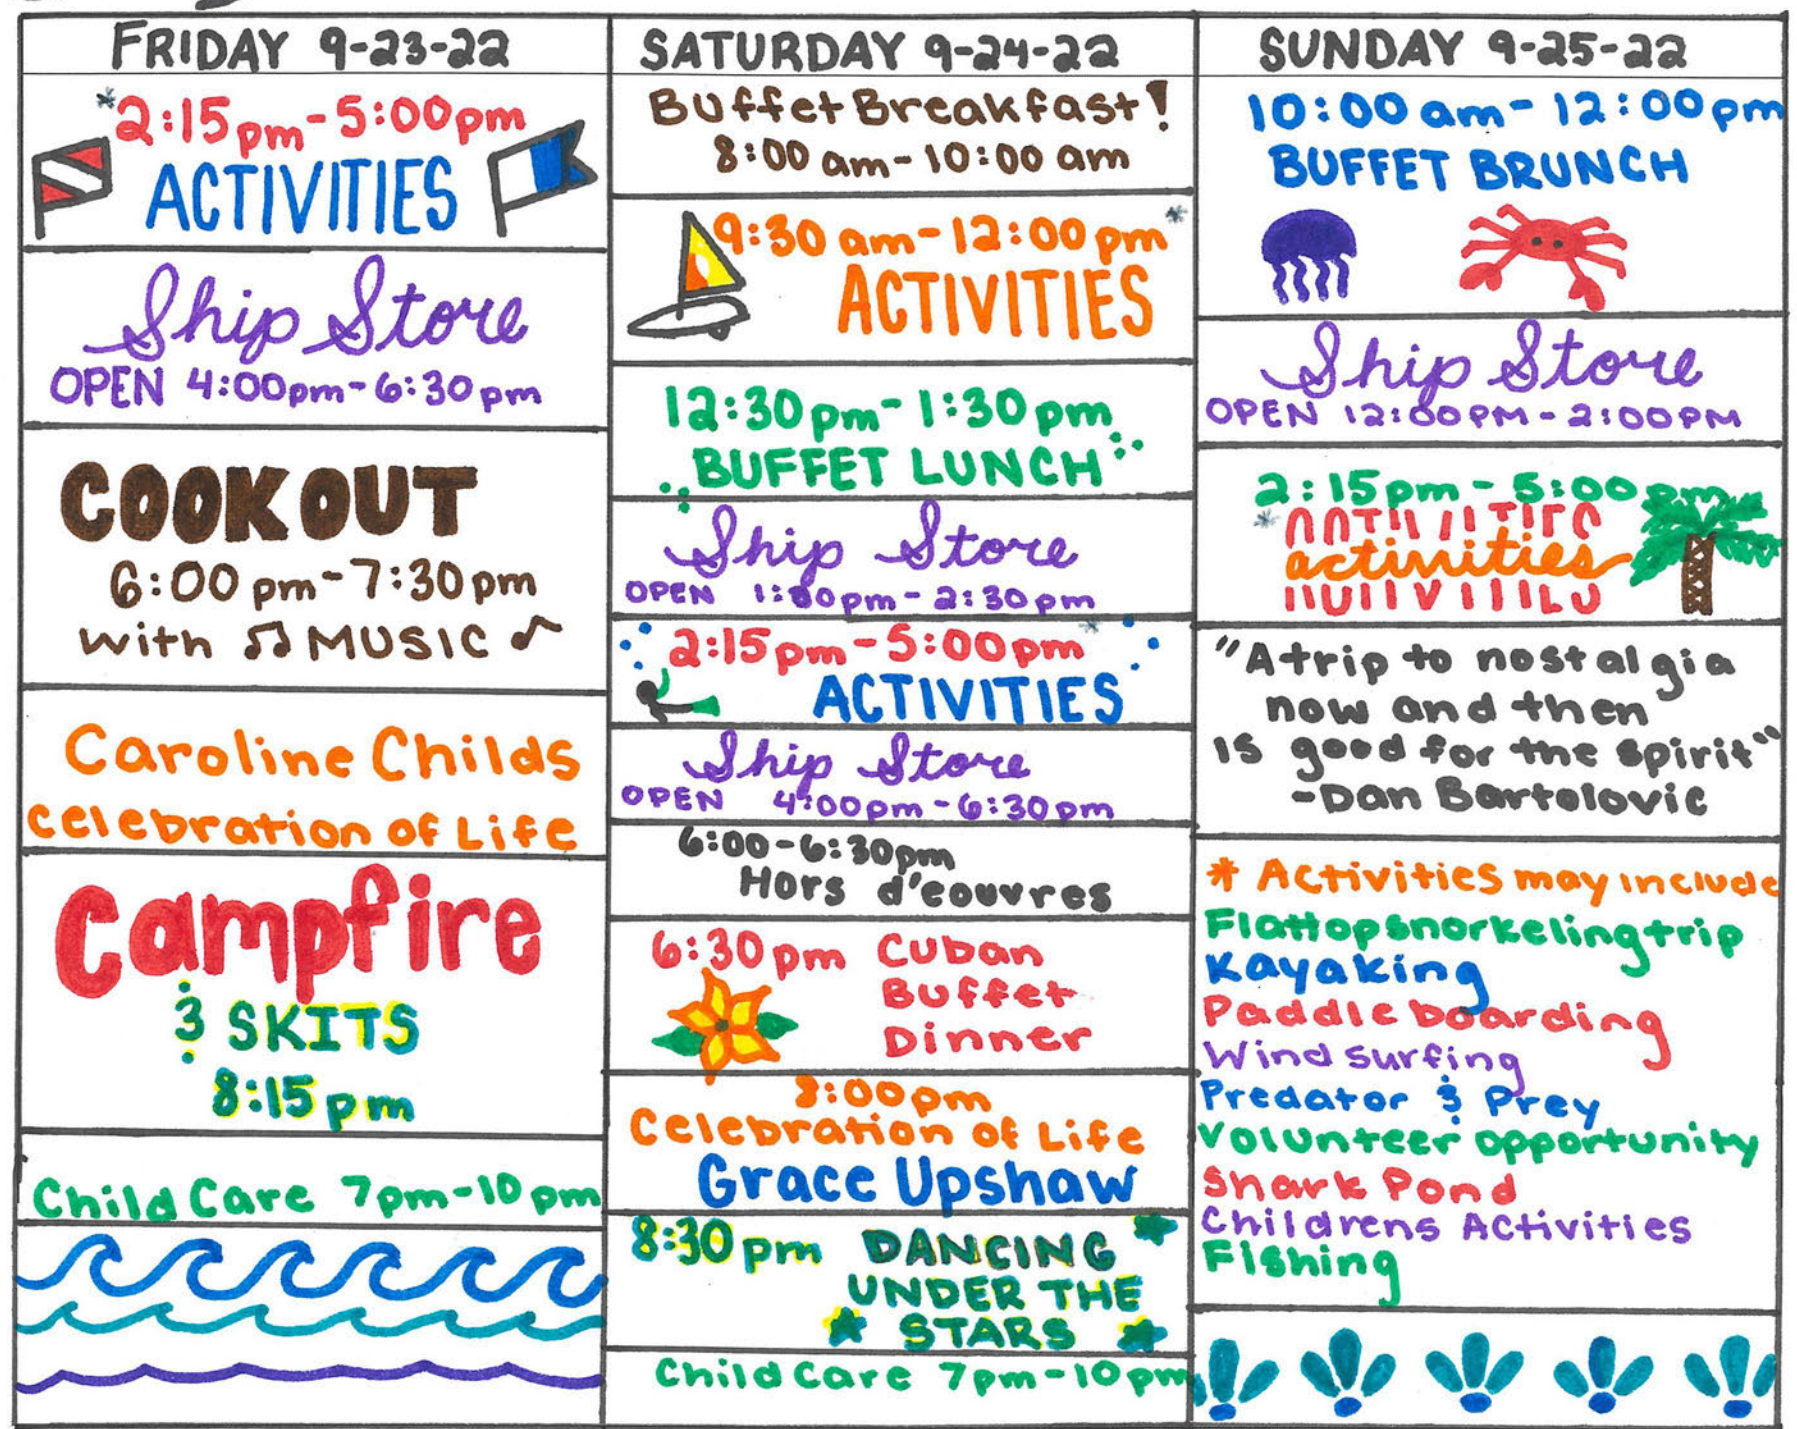 FRIDAY 9-23-22
*2:15pm-5:00pm
ACTIVITIES
Ship Store
OPEN 4:00pm-6:30pm
COOKOUT
6:00pm-7:30pm
with ♫ MUSIC ♪
Caroline Childs
Celebration of Life
Campfire
& SKITS
8:15pm
Child Care 7pm-10pm
SATURDAY 9-24-22
Buffet Breakfast!
8:00am-10:00am
9:30am-12:00pm*
ACTIVITIES
12:30pm-1:30pm
BUFFET LUNCH
Ship Store
OPEN 1:00pm-2:30pm
2:15pm-5:00pm*
ACTIVITIES
Ship Store
OPEN 4:00pm-6:30pm
6:00-6:30pm
Hors d'eouvres
6:30pm Cuban
Buffet
Dinner
8:00pm
Celebration of Life
Grace Upshaw
8:30pm DANCING
UNDER THE
STARS
Child Care 7pm-10pm
SUNDAY 9-25-22
10:00am-12:00pm
BUFFET BRUNCH
Ship Store
OPEN 12:00PM-2:00PM
2:15pm-5:00pm
*activities
"A trip to nostalgia
now and then
is good for the spirit"
-Dan Bartolovic
* Activities may include
Flattop snorkeling trip
Kayaking
Paddle boarding
Wind surfing
Predator & Prey
Volunteer opportunity
Shark Pond
Childrens Activities
Fishing